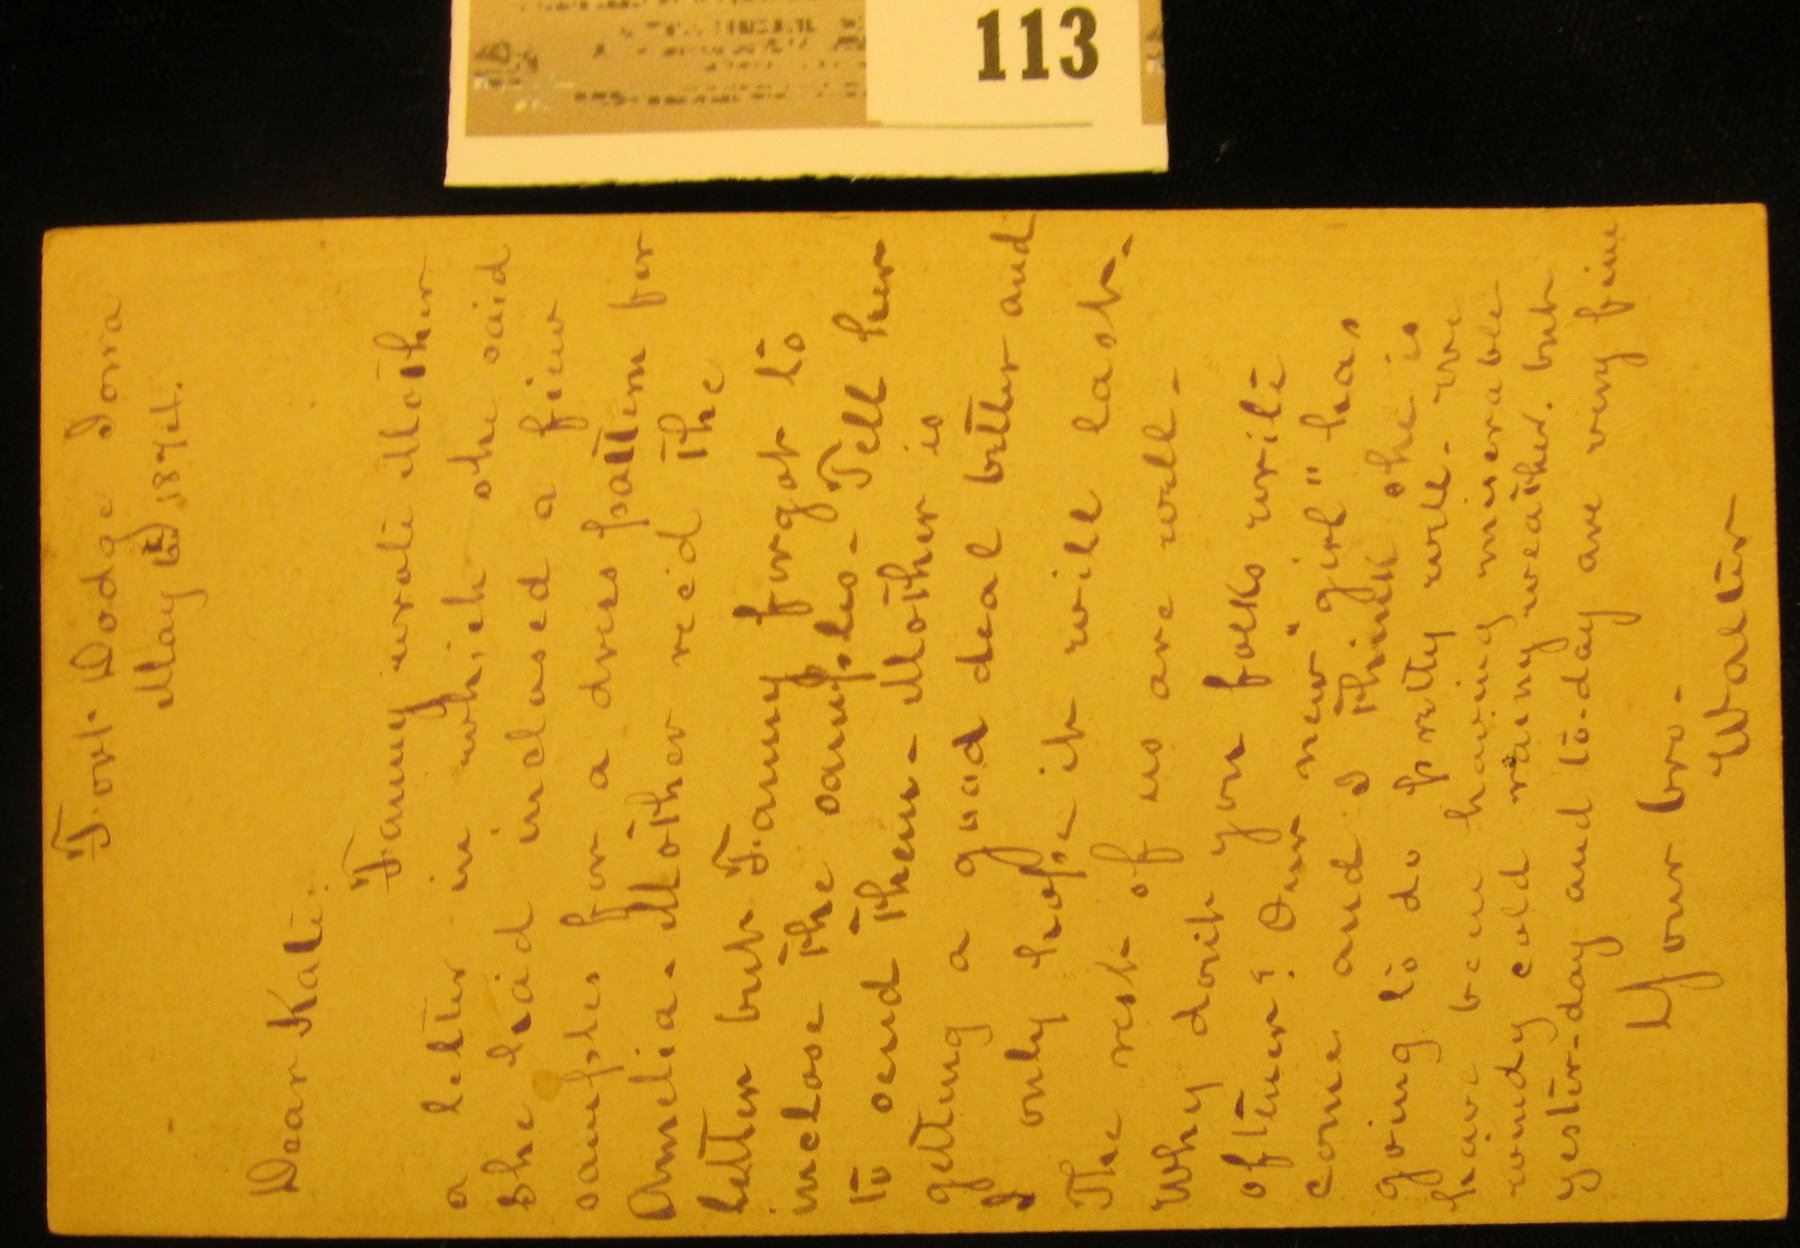 113
Fort Dodge Iowa
May 1874.
Dear Kate:
Fanny wrote Mother
a letter in which she said
she had inclosed a few
samples for a dress pattern for
Amelia. Mother rec'd the
letter but Fanny forgot to
inclose the samples - Tell her
to send them - Mother is
getting a good deal better and
I only hope it will last -
The rest of us are well -
Why don't you folks write
oftener? Our new "girl" has
come and I think she is
going to do pretty well - we
have been having miserable
windy cold rainy weather. but
yester-day and to-day are very fine
Your bro -
Walter